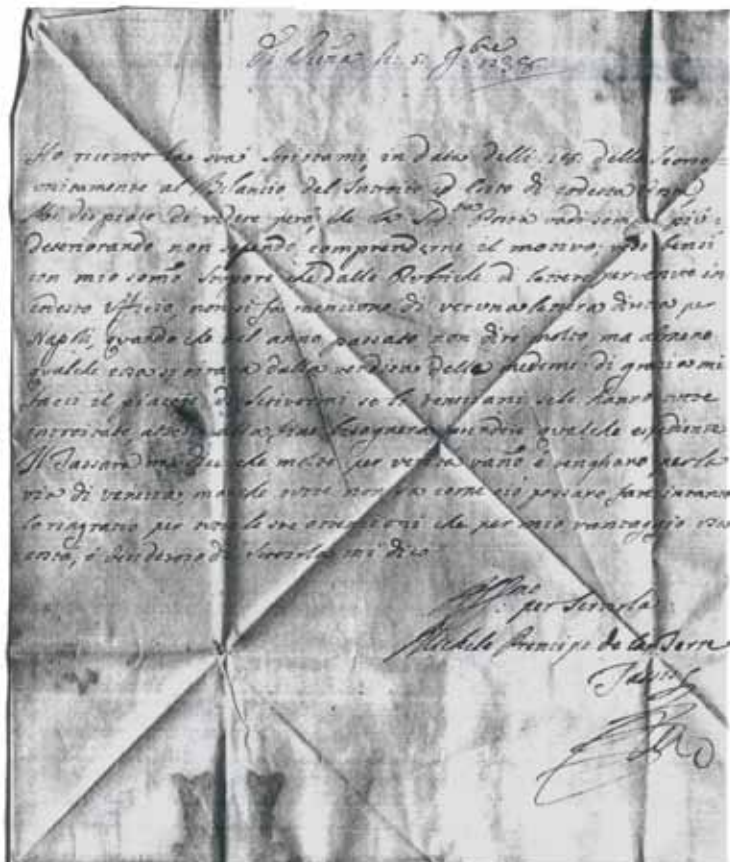 Di Viena li 5 9bre 1738
Ho ricevuto la sua in data delli 25 dello
unitamente al Bilancio del Introito ed Esito di codesta
Mi dispiace di vedere però che la Posta vadi sempre più
deteriorando non sapendo comprenderne il motivo, vedo bensì
con mio somo stupore che dalle Rubriche di lettere pervenute in
codesto Uffizio, non si fa menzione di veruna lettera diretta per
Napoli, quando che nel anno passato non dirò molto ma almeno
qualche cosa si ricavava dalla vendita delle medeme: di grazia mi
facci il piacere di scrivermi se li veneziani se le hanno tutte
alla fine bisognerà prendere qualche espediente
Il Tassara mi dice che molte per verità vano e venghano per la
via di venezia, ma che tutte non sa come ciò possano fare, intanto
lo ringrazio per tutte le sue attenzioni che per mio vantaggio
costà, e di servirla mi dico
per Servirla
Michele Principe de la Torre
Tassis